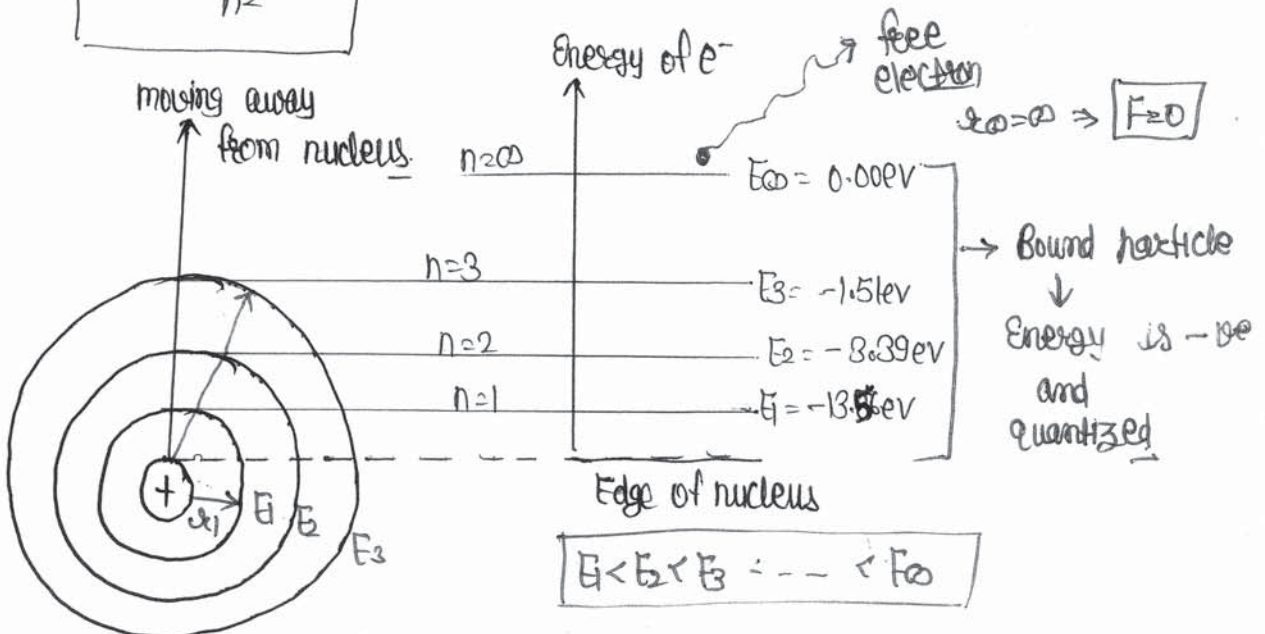 n²
moving away
from nucleus.
Energy of e⁻
free
electron
r∞=∞ ⇒ F=0
n=∞
E∞ = 0.00eV
n=3
E3= -1.51ev
n=2
E2= -3.39ev
n=1
E1= -13.6ev
→ Bound particle
↓
Energy is -ve
and
quantized
Edge of nucleus
+
r1
E1
E2
E3
E1<E2<E3 ---- < E∞